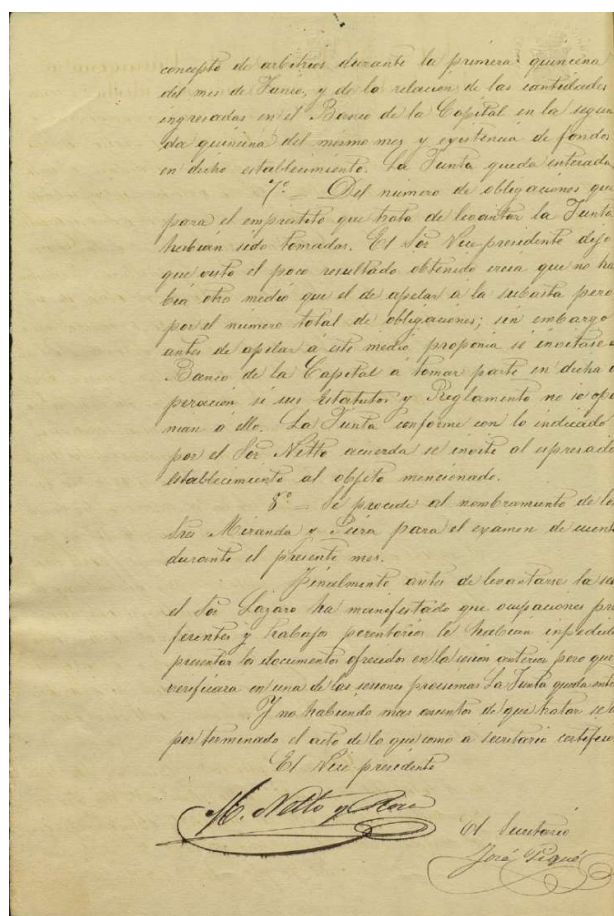 concepto de arbitrios durante la primera quincena
del mes de Junio, y de la relacion de las cantidades
ingresadas en el Banco de la Capital en la segun
da quincena del mismo mes y existencia de fondos
en dicho establecimiento. La Junta queda enterada
7º — Del numero de obligaciones que
para el emprestito que trata de levantar la Junta
habian sido tomadas. El Sor Vice-presidente dijo
que visto el poco resultado obtenido creia que no ha
bia otro medio que el de apelar á la subasta pero
por el numero total de obligaciones; sin embargo
antes de apelar á este medio proponia se invitase a
Banco de la Capital a tomar parte en dicha o
peracion si sus Estatutos y Reglamento no se opo
nian a ello. La Junta conforme con lo indicado
por el Sor Netto acuerda se invite al espresado
establecimiento al objeto mencionado.
8º — Se procede al nombramiento de los
Sres Miranda y Peira para el examen de cuent
durante el presente mes.
Finalmente antes de levantarse la se
el Sor Lázaro ha manifestado que ocupaciones pre
ferentes y trabajos perentorios le habian impedido
presentar los documentos ofrecidos en la sesion anterior pero que
verificara en una de las sesiones procsimas La Junta queda ente
Y no habiendo mas asuntos de que tratar se d
por terminado el acto de lo que como a secretario certifico
El Vice-presidente
M. Netto y
El Secretario
José Piqué